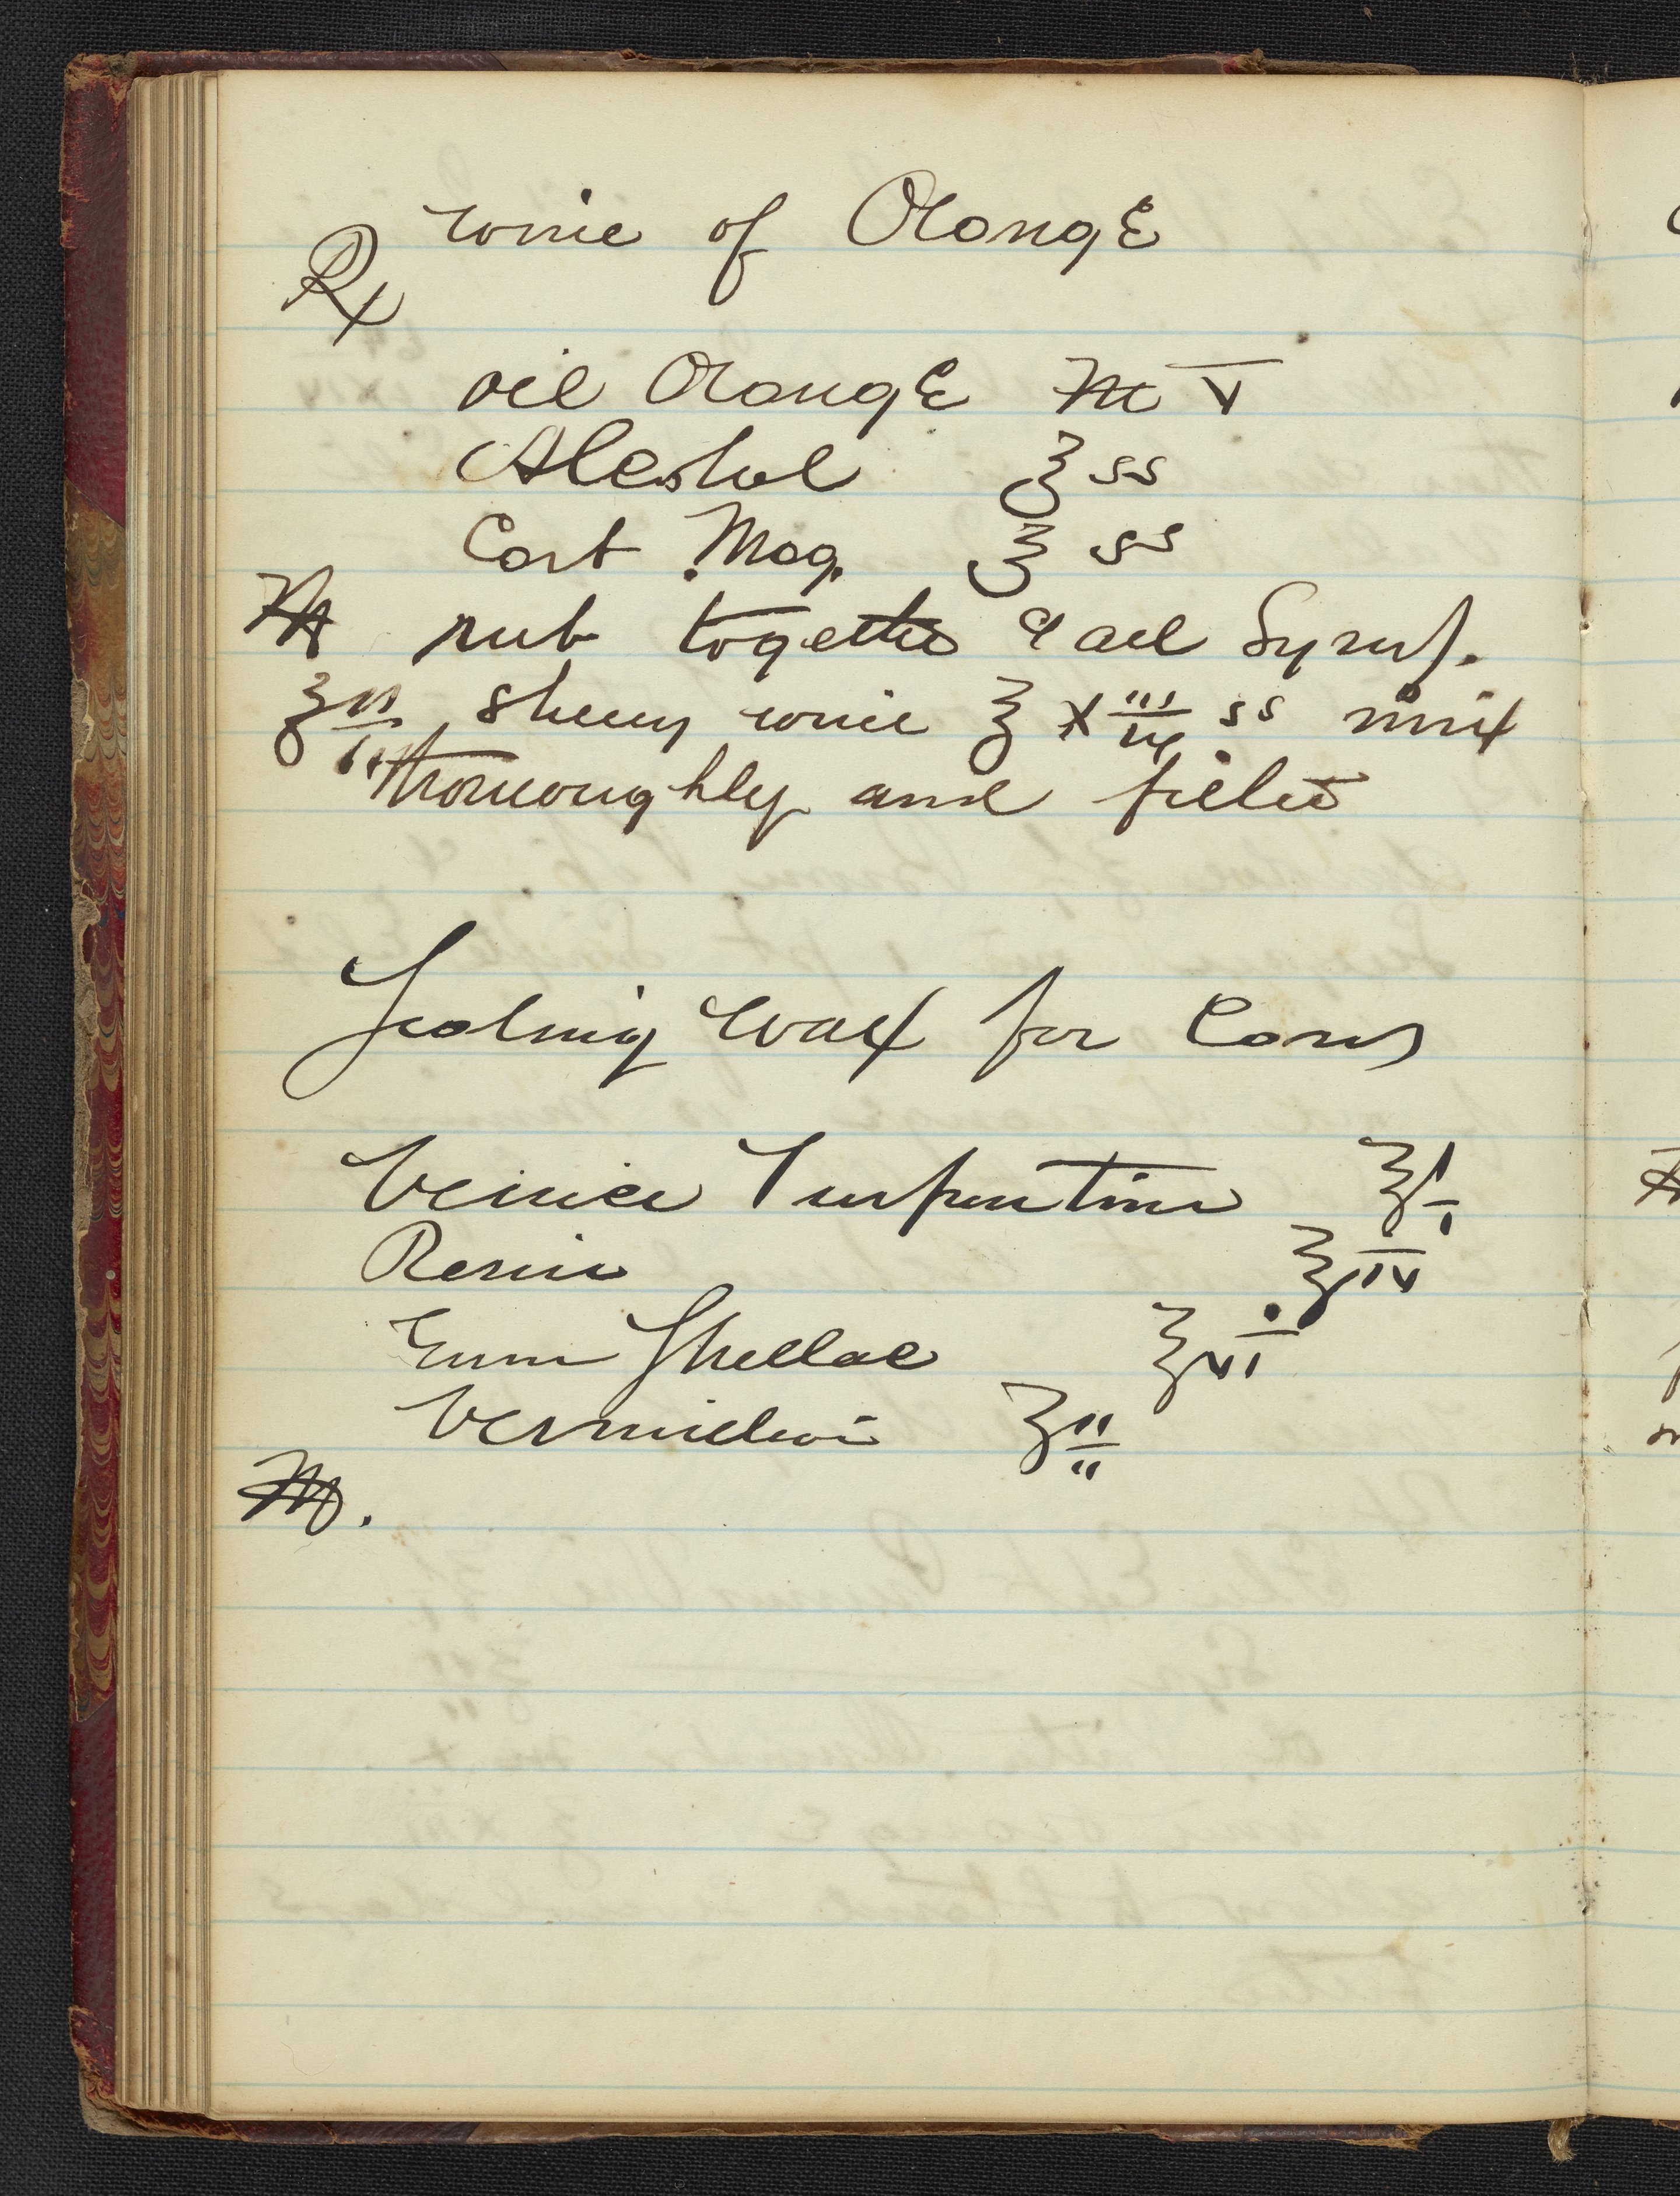 Wine of Orange
Rx
Oil Orange ♏ V
Alcohol ℥ ss
Carb. Mag. ℥ ss
M rub together & add Syrup.
℥ii, sherry wine ℥ xiii ss mix
thorououghly and filter
Sealing Wax for Cans
Venice Turpentine ℥i
Resin ℥iv
Gum Shellac ℥vi
Vermilion ℥ii
M.